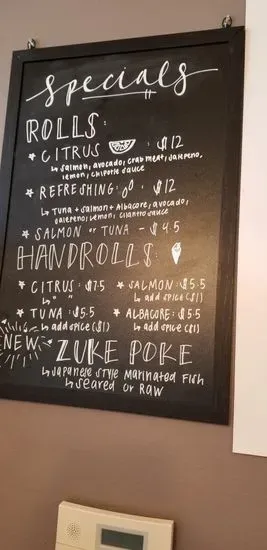 specials
ROLLS:
★ CITRUS : $12
↳ salmon, avocado, crab meat, jalepeno,
lemon, chipotle sauce
★ REFRESHING: : $12
↳ Tuna + salmon + Albacore, avocado,
jalepeno, lemon, cilantro sauce
★ SALMON or TUNA - $4.5
HANDROLLS:
★ CITRUS: $7.5 ★ SALMON: $5.5
↳ " " ↳ add spice ($1)
★ TUNA: $5.5 ★ ALBACORE: $5.5
↳ add spice ($1) ↳ add spice ($1)
NEW ZUKE POKE
↳ Japanese style Marinated Fish
↳ seared or raw